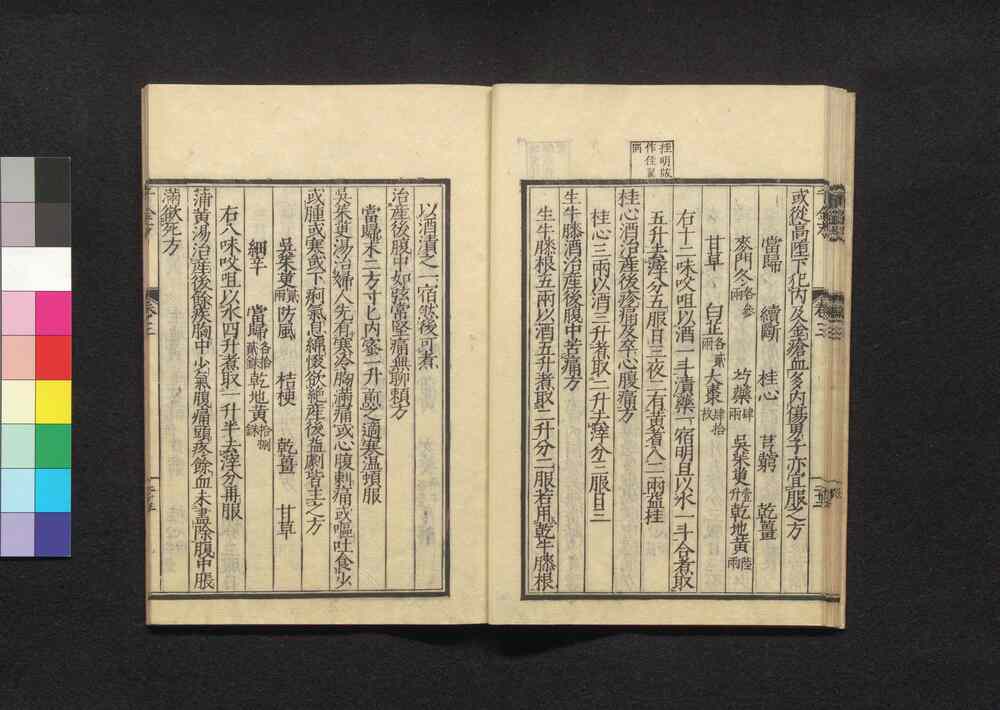 或從高墮下犯內及金瘡血多內傷男子亦宜服之方
當歸 續斷 桂心 芎藭 乾薑
麥門冬各參兩 芍藥肆兩 吳茱萸壹升 乾地黃陸兩
甘草 白芷各貳兩 大棗肆拾枚
右十二味㕮咀以酒一斗漬藥一宿明旦以水一斗合煮取
五升去滓分五服日三夜二有黃耆入二兩益桂
桂心酒治產後疹痛及卒心腹痛方
桂心三兩以酒三升煮取二升去滓分三服日三
生牛膝酒治產後腹中苦痛方
生牛膝根五兩以酒五升煮取二升分二服若用乾牛膝根
以酒漬之一宿然後可煮
治產後腹中如弦當堅痛無聊賴方
當歸末二方寸匕內蜜一升煎之適寒溫頓服
吳茱萸湯治婦人先有寒冷胸滿痛或心腹刺痛或嘔吐食少
或腫或寒或下痢氣息綿惙欲絕產後益劇皆主之方
吳茱萸貳兩 防風 桔梗 乾薑 甘草
細辛 當歸各拾貳銖 乾地黃拾捌銖
右八味㕮咀以水四升煮取一升半去滓分再服
蒲黃湯治產後餘疾胸中少氣腹痛頭疼餘血未盡除腹中脹
滿欲死方
千金方 卷三